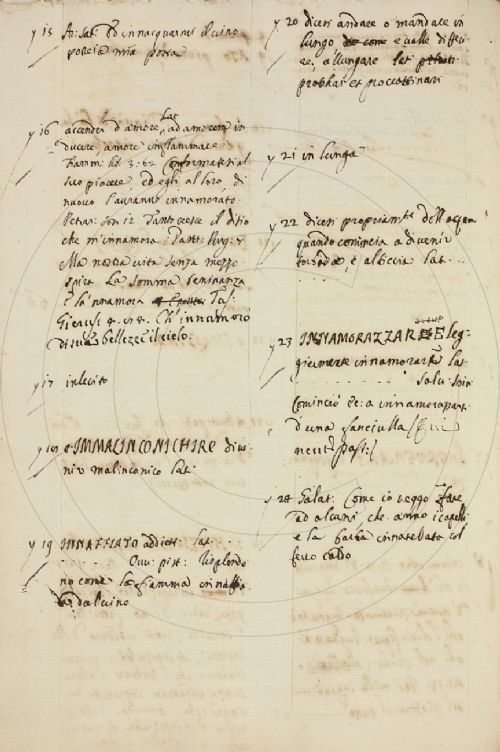 y 15 Ar: Sat: Ed innacquarmi il vino
poscia mia posta
y 16 accender d'amore Lat ad amorem in
ducere, amore inflammare
Fiamm: lib 3: 62
suo piacere, ed egli al loro, di
nuovo l'avranno innamorato.
Petrar: son 12 Tanto cresce il disio
che m'innamora: Dant: Purg: 
Ma nostra vita senza mezzo
spira La somma beninanza
e la innamora Tas:
Gierus: 4. Ch' innamorò
di sue bellezze il cielo.
y 17 inlecito
IMMALINCONICHIRE dive
nir malinconico Lat:
y 19 INNAFFIATO addiett: lat
Ovv: pist: risplende
no come la fiamma innaffia
ta dal vino
y 20 dicesi andare o mandare in
lungo e vale differi
re, allungare Lat
protrahere et procrastinari
y 21 in lunga
y 22 dicesi propriam.te dell'acqua
quando comincia a divenir
torbida, e albiccia Lat
y 23 INNAMORAZZARE leg
giermente innamorare Lat
Salv: Spin
Cominciò a innamorazzarsi
d'una fanciulla
y 24 Galat: Come io veggo fare
ad alcuni, che anno i capelli
e la barba innanellata col
ferro caldo